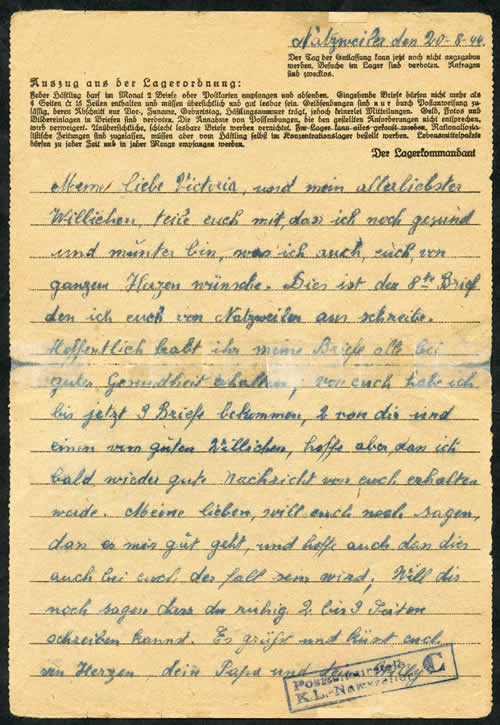 Natzweiler den 20-8-44.
Der Tag der Entlassung kann jetzt noch nicht angegeben
werden. Besuche im Lager sind verboten. Anfragen
sind zwecklos.
Auszug aus der Lagerordnung:
Jeder Häftling darf im Monat 2 Briefe oder Postkarten empfangen und absenden. Eingehende Briefe dürfen nicht mehr als
4 Seiten à 15 Zeilen enthalten und müssen übersichtlich und gut lesbar sein. Geldsendungen sind nur durch Postanweisung zu-
lässig, deren Abschnitt nur Vor-, Zuname, Geburtstag, Häftlingsnummer trägt, jedoch keinerlei Mitteilungen. Geld, Fotos und
Bildereinlagen in Briefen sind verboten. Die Annahme von Postsendungen, die den gestellten Anforderungen nicht entsprechen,
wird verweigert. Unübersichtliche, schlecht lesbare Briefe werden vernichtet. Im Lager kann alles gekauft werden. Nationalsozia-
listische Zeitungen sind zugelassen, müssen aber vom Häftling selbst im Konzentrationslager bestellt werden. Lebensmittelpakete
dürfen zu jeder Zeit und in jeder Menge empfangen werden.
Der Lagerkommandant
Meine liebe Victoria, und mein allerliebster
Willichen, teile euch mit, dass ich noch gesund
und munter bin, was ich auch, euch, von
ganzem Herzen wünsche. Dies ist der 8te Brief
den ich euch von Natzweiler aus schreibe.
Hoffentlich habt ihr meine Briefe alle bei
guter Gesundheit erhalten, von euch habe ich
bis jetzt 3 Briefe bekommen, 2 von dir und
einen vom guten Willichen, hoffe aber, dass ich
bald wieder gute Nachricht von euch erhalten
werde. Meine lieben, will euch noch sagen,
dass es mir gut geht, und hoffe auch dass dies
auch bei euch der fall sein wird, Will dir
noch sagen dass du ruhig 2 bis 3 Seiten
schreiben kannst. Es grüßt und küsst euch
im Herzen, dein Papa und
Postzensurstelle C
K.L.-Natzweiler